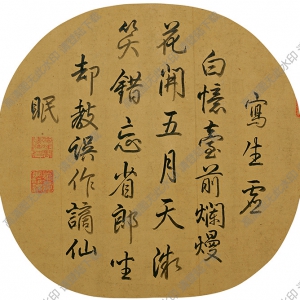 寫生虛
白憶臺前爛熳
花開五月天微
笑錯忘省郎坐
却教誤作謫仙
眠